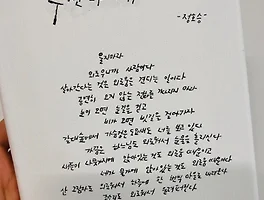 -정호승-
울지마라
외로우니까 사람이다
살아간다는 것은 외로움을 견디는 일이다
공연히 오지 않는 전화를 기다리지 마라
눈이 오면 눈길을 걷고
비가 오면 빗길을 걸어가라
갈대숲에서 가슴검은도요새도 너를 보고 있다
가끔은 하느님도 외로워서 눈물을 흘리신다
새들이 나뭇가지에 앉아있는 것도 외로움 때문이고
네가 물가에 앉아 있는 것도 외로움 때문이다
산 그림자도 외로워서 하루에 한 번씩 마을로 내려온다
외로워서 울려퍼진다